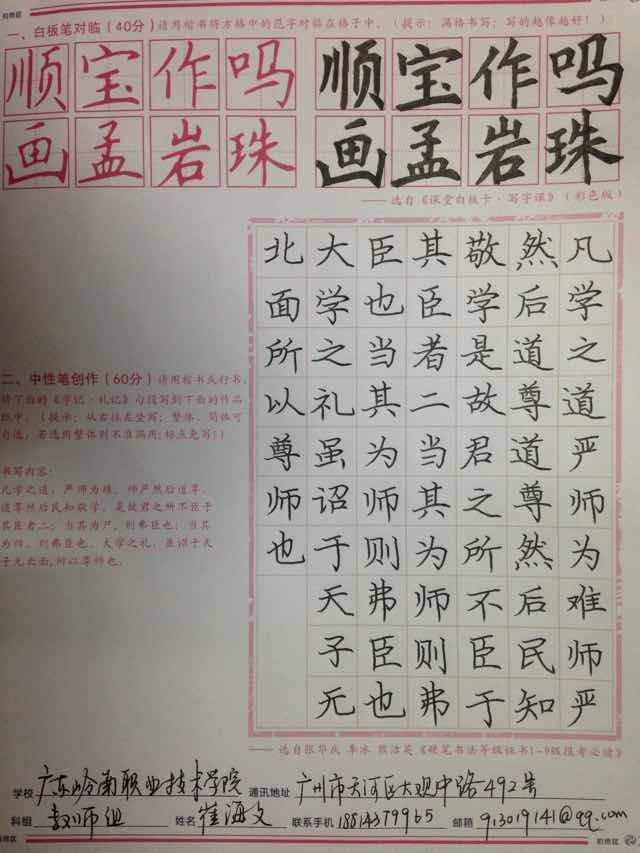 前桥区
一、白板笔对临（40分）请用楷书将方格中的范字对临在格子中。（提示：满格书写；写的越像越好！）
顺宝作吗 顺宝作吗
画孟岩珠 画孟岩珠
——选自《课堂白板卡·写字课》（彩色版）
二、中性笔创作（60分）请用楷书或行书,
将下面的《学记·礼记》句段写到下面的作品
纸中。（提示：从右往左竖写；繁体、简体可
自选，若选用繁体则不准漏用;标点免写!）
书写内容：
凡学之道，严师为难。师严然后道尊，
道尊然后民知敬学。是故君之所不臣于
其臣者二：当其为尸，则弗臣也；当其
为师，则弗臣也。大学之礼，虽诏于天
子无北面,所以尊师也。
凡学之道严师为难师严
然后道尊道尊然后民知
敬学是故君之所不臣于
其臣者二当其为师则弗
臣也当其为师则弗臣也
大学之礼虽诏于天子无
北面所以尊师也
——选自张华庆 李冰 《硬笔书法等级证书1-9级报考必读》
学校 广东岭南职业技术学院 通讯地址 广州市天河区大观中路492号
科组 教师组 姓名 崔海文 联系手机 18814379965 邮箱 913019141@qq.com